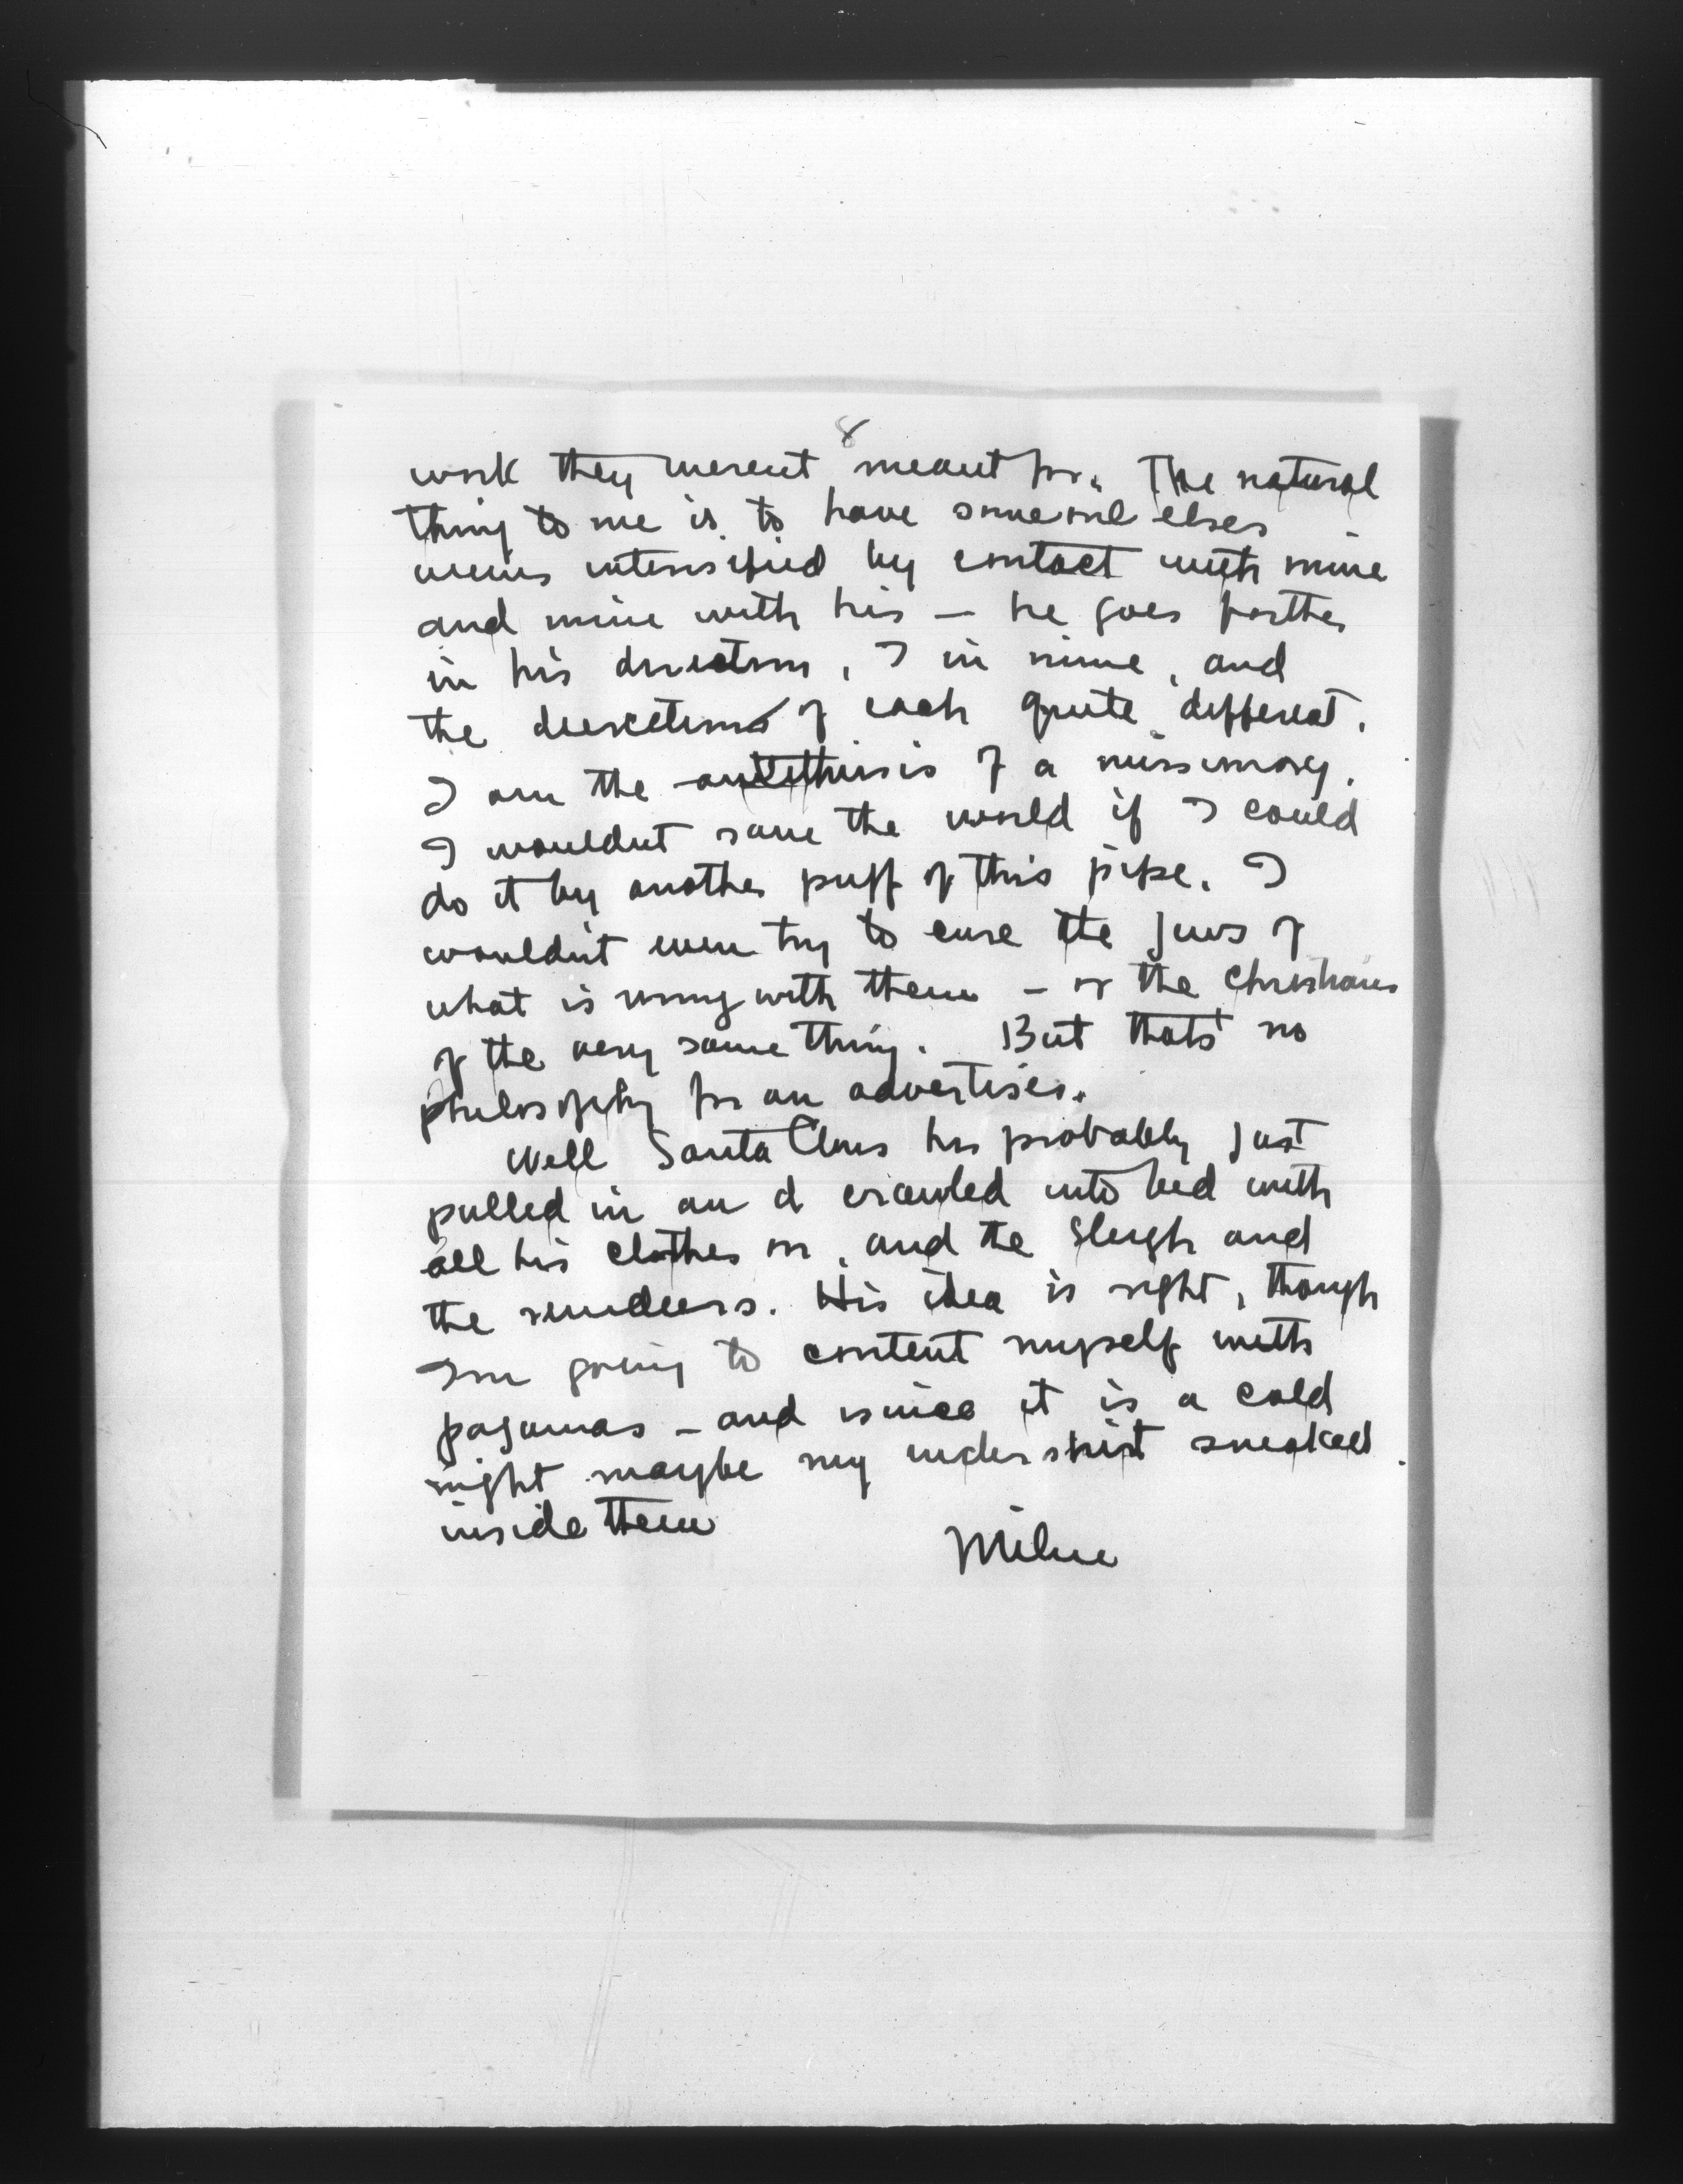 8
work they werent meant for. The natural
thing to me is to have someone elses
views intensified by contact with mine
and mine with his — he goes farther
in his direction, I in mine, and
the directions of each quite different.
I am the antithisis of a missionary.
I wouldnt save the world if I could
do it by another puff of this pipe. I
wouldn't even try to cure the Jews of
what is wrong with them — or the Christians
of the very same thing. But thats no
philosophy for an advertiser.
Well Santa Claus has probably just
pulled in and crawled into bed with
all his clothes on, and the sleigh and
the reindeers. His idea is right, though
Im going to content myself with
pajamas — and since it is a cold
night maybe my undershirt sneaked
inside them.
Milne